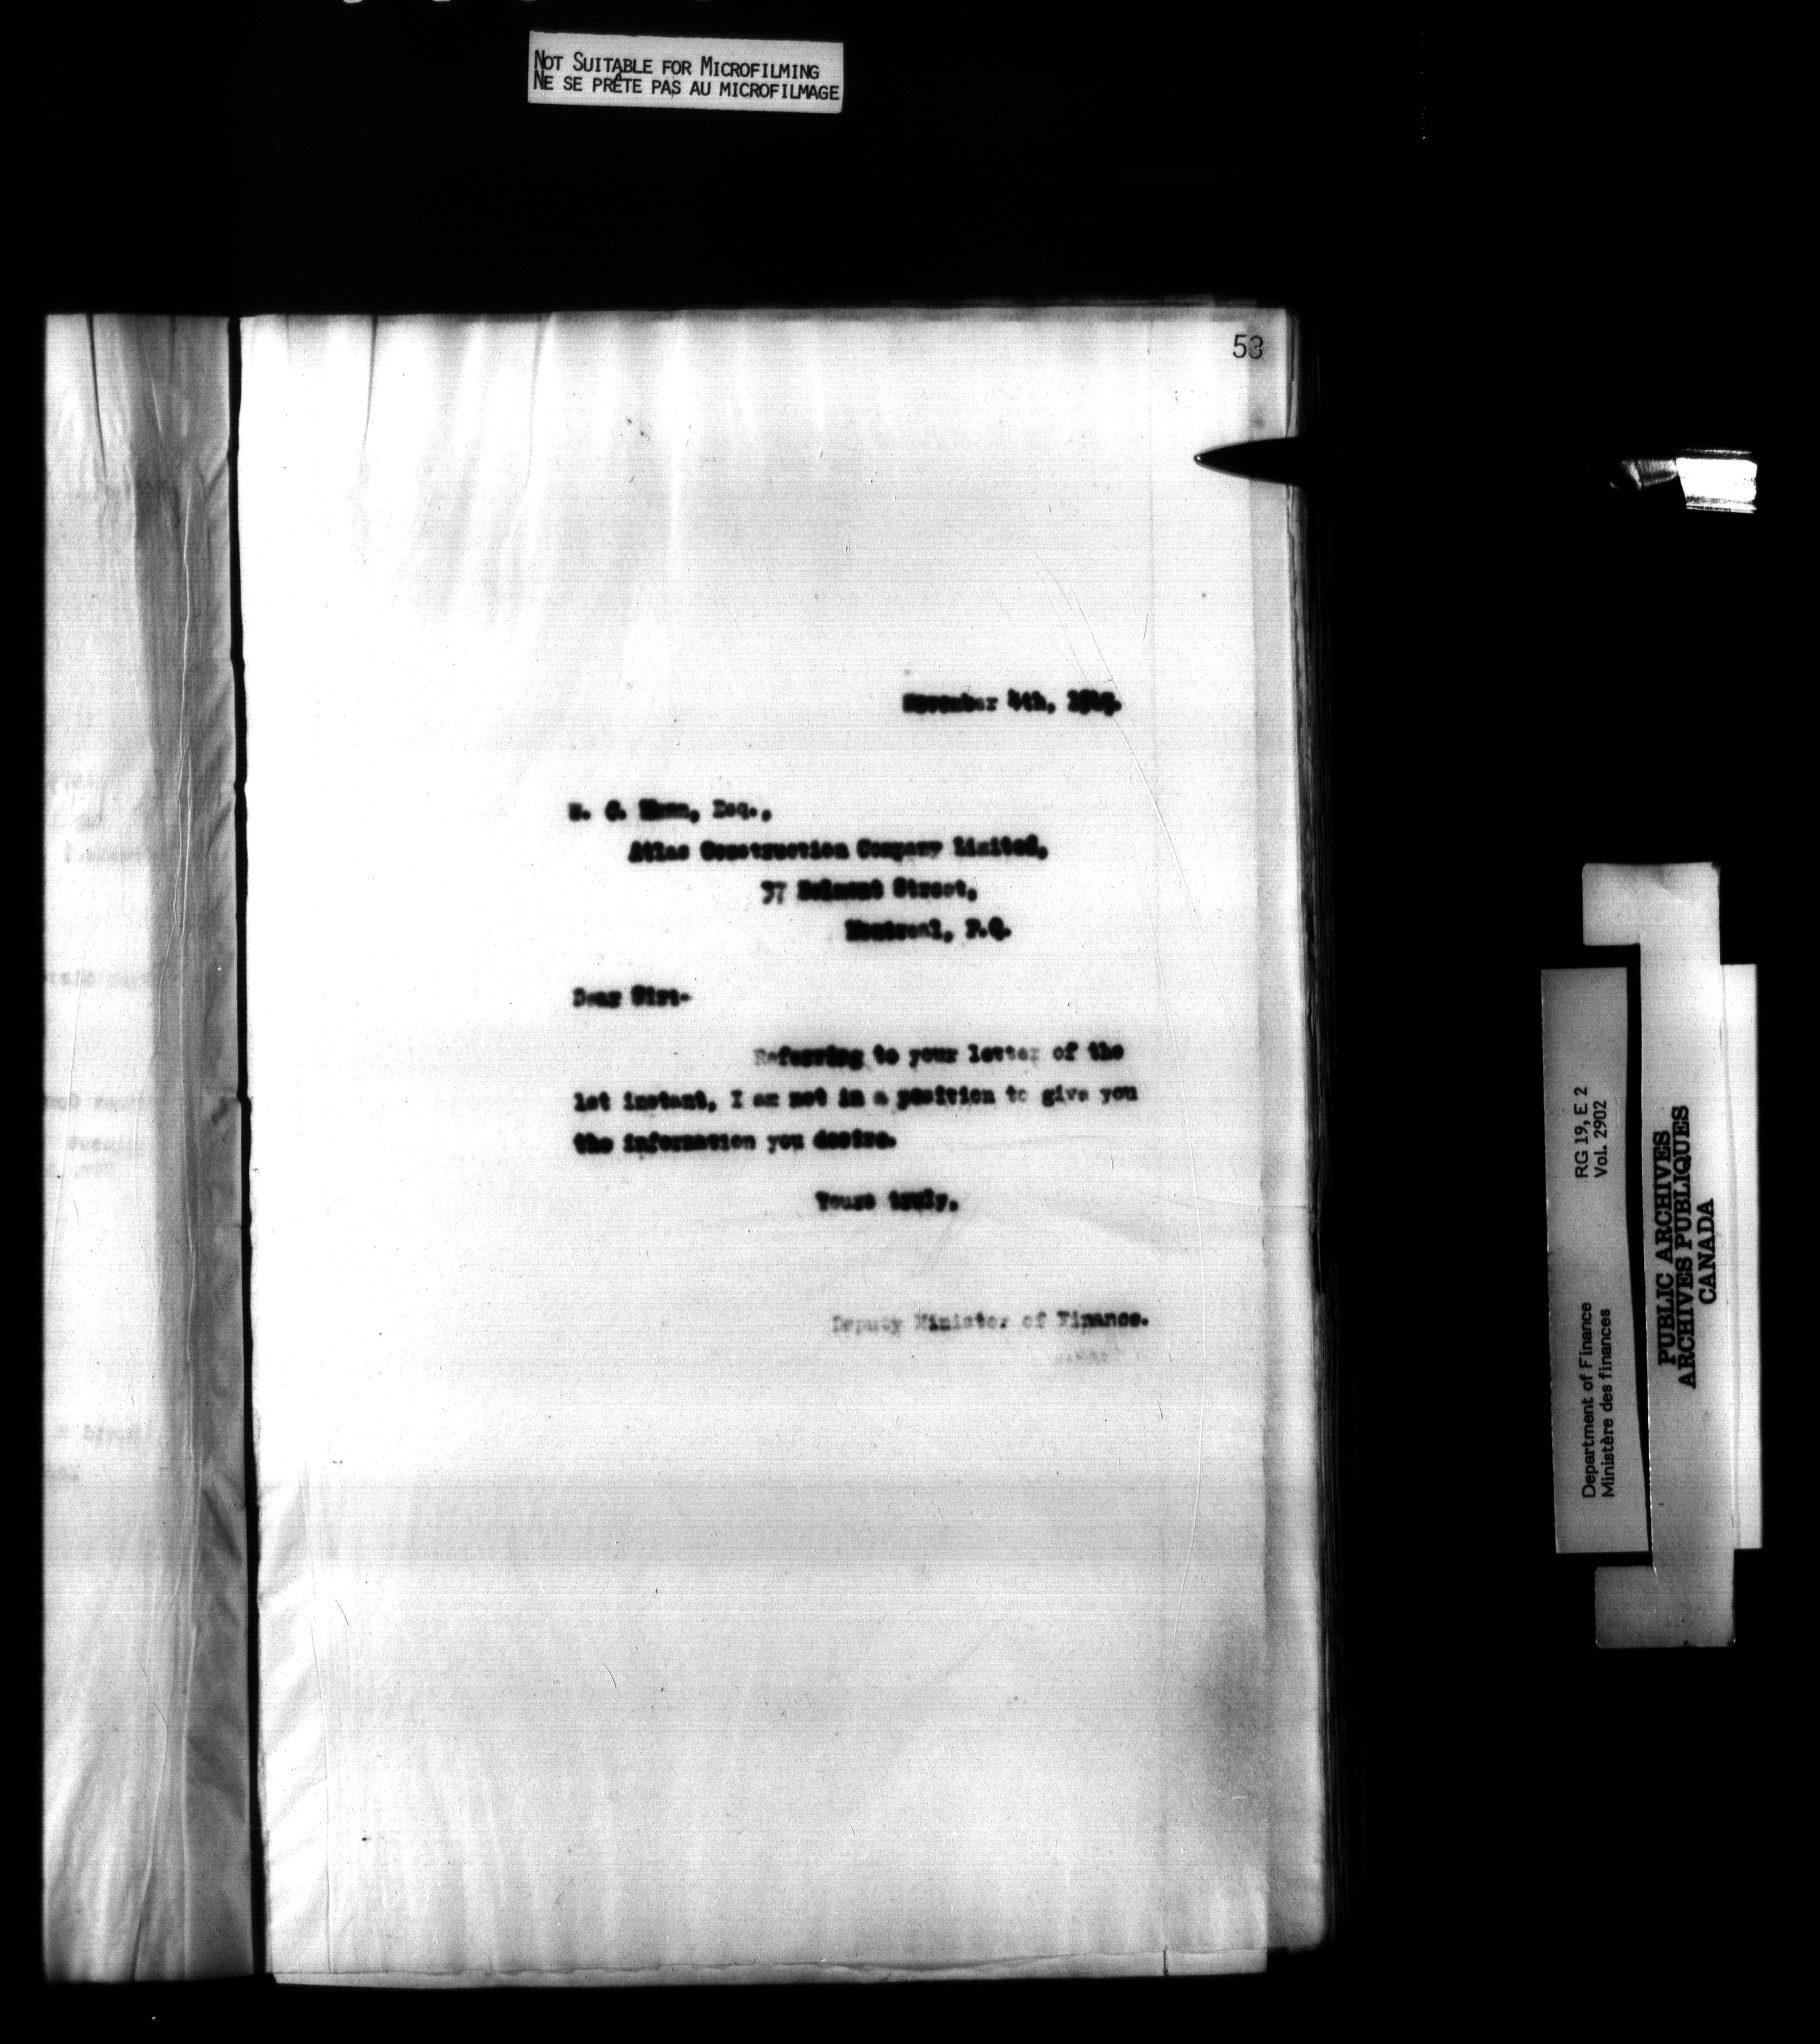 NOT SUITABLE FOR MICROFILMING
NE SE PRÊTE PAS AU MICROFILMAGE
53
November 4th,
Esq.,
Atlas Construction Company Limited,
37 Belmont Street,
Montreal, P.Q.
Dear Sir:-
Referring to your letter of the
1st instant, I am not in a position to give you
the information you desire.
Yours truly,
Deputy Minister of Finance.
RG 19, E 2
Vol. 2902
Department of Finance
Ministère des finances
PUBLIC ARCHIVES
ARCHIVES PUBLIQUES
CANADA